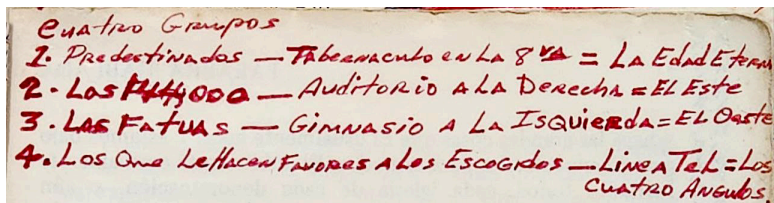 Cuatro Grupos
1. Predestinados — Tabernaculo en La 8va = La Edad Eterna
2. Los 144,000 — Auditorio a La Derecha = El Este
3. Las Fatuas — Gimnasio a La Isquierda = El Oeste
4. Los Que Le Hacen Favores a Los Escogidos — Linea Tel = Los
Cuatro Angulos